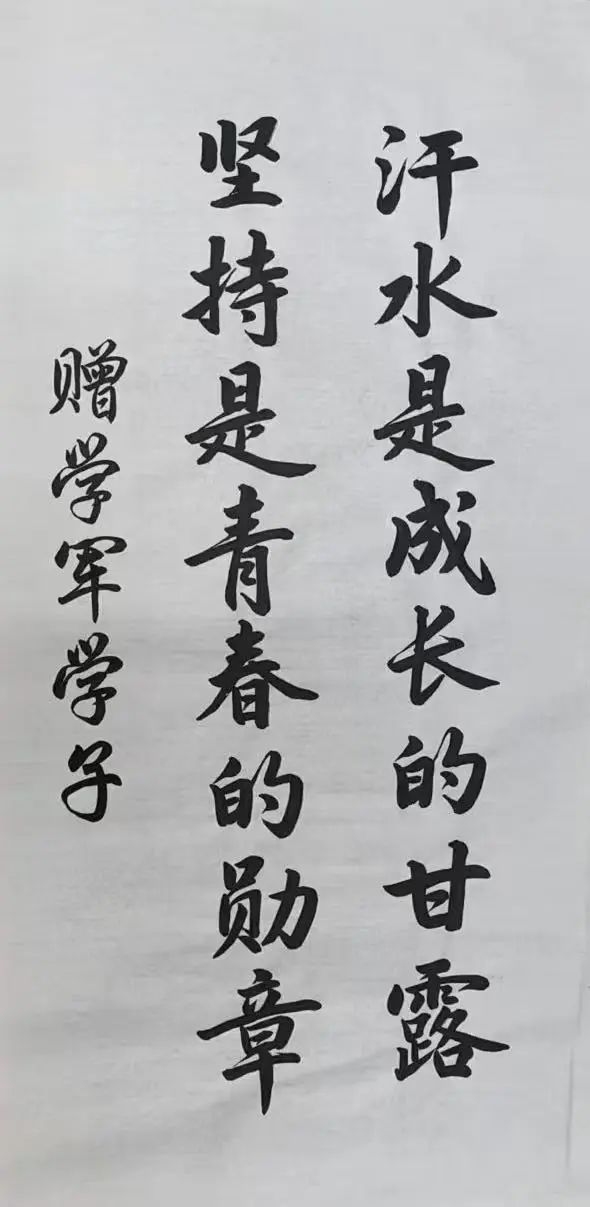 汗水是成长的甘露
坚持是青春的勋章
赠学军学子